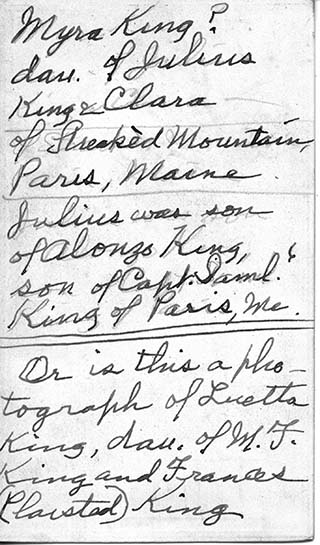 Myra King?
dau. of Julius
King & Clara
of Streaked Mountain,
Paris, Maine.
Julius was son
of Alonzo King,
son of Capt. Saml.
King of Paris, Me.
Or is this a pho-
tograph of Luetta
King, dau. of M. F.
King and Frances
(Plaisted) King